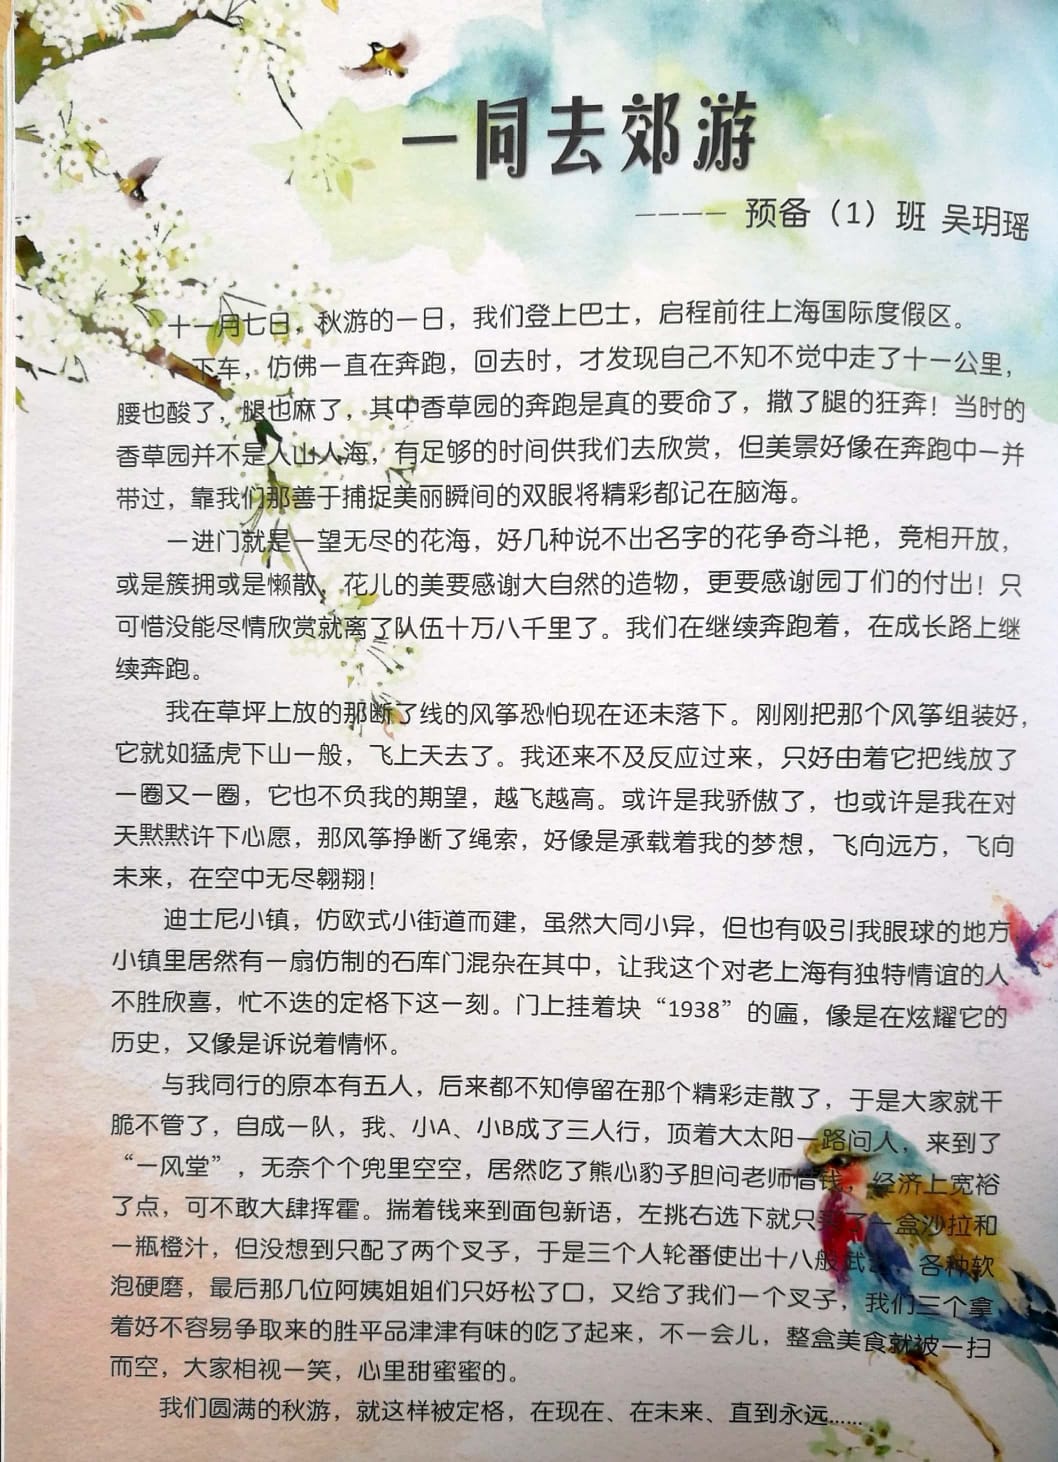 一同去郊游
———— 预备（1）班 吴玥瑶
十一月七日，秋游的一日，我们登上巴士，启程前往上海国际度假区。
下车，仿佛一直在奔跑，回去时，才发现自己不知不觉中走了十一公里，
腰也酸了，腿也麻了，其中香草园的奔跑是真的要命了，撒了腿的狂奔！当时的
香草园并不是人山人海，有足够的时间供我们去欣赏，但美景好像在奔跑中一并
带过，靠我们那善于捕捉美丽瞬间的双眼将精彩都记在脑海。
一进门就是一望无尽的花海，好几种说不出名字的花争奇斗艳，竞相开放，
或是簇拥或是懒散，花儿的美要感谢大自然的造物，更要感谢园丁们的付出！只
可惜没能尽情欣赏就离了队伍十万八千里了。我们在继续奔跑着，在成长路上继
续奔跑。
我在草坪上放的那断了线的风筝恐怕现在还未落下。刚刚把那个风筝组装好，
它就如猛虎下山一般，飞上天去了。我还来不及反应过来，只好由着它把线放了
一圈又一圈，它也不负我的期望，越飞越高。或许是我骄傲了，也或许是我在对
天默默许下心愿，那风筝挣断了绳索，好像是承载着我的梦想，飞向远方，飞向
未来，在空中无尽翱翔！
迪士尼小镇，仿欧式小街道而建，虽然大同小异，但也有吸引我眼球的地方
小镇里居然有一扇仿制的石库门混杂在其中，让我这个对老上海有独特情谊的人
不胜欣喜，忙不迭的定格下这一刻。门上挂着块“1938”的匾，像是在炫耀它的
历史，又像是诉说着情怀。
与我同行的原本有五人，后来都不知停留在那个精彩走散了，于是大家就干
脆不管了，自成一队，我、小A、小B成了三人行，顶着大太阳一路问人，来到了
“一风堂”，无奈个个兜里空空，居然吃了熊心豹子胆问老师借钱，经济上宽裕
了点，可不敢大肆挥霍。揣着钱来到面包新语，左挑右选下就只买了一盒沙拉和
一瓶橙汁，但没想到只配了两个叉子，于是三个人轮番使出十八般武 各种软
泡硬磨，最后那几位阿姨姐姐们只好松了口，又给了我们一个叉子，我们三个拿
着好不容易争取来的胜平品津津有味的吃了起来，不一会儿，整盒美食就被一扫
而空，大家相视一笑，心里甜蜜蜜的。
我们圆满的秋游，就这样被定格，在现在、在未来、直到永远……